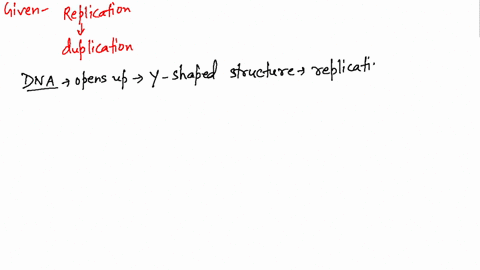 Given- Replication
↓
duplication
DNA → opens up → Y-shaped structure → replicati